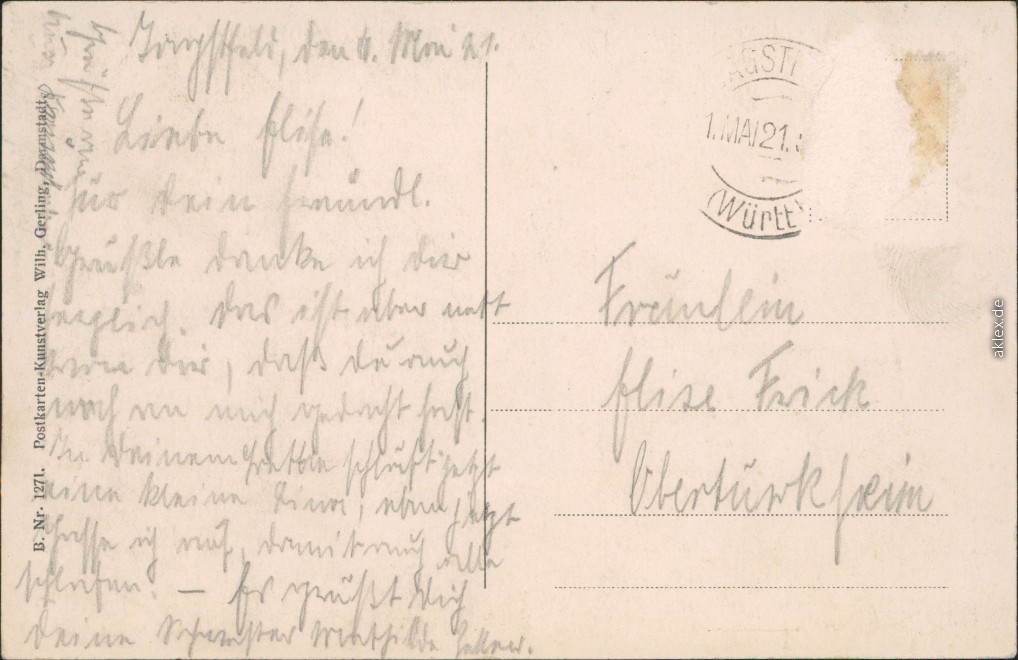 Jagstfeld, den 1. Mai 21.
Liebe Elise!
Für Dein freundl.
Grüßle danke ich dir
. Das ist aber nett
von dir, daß du auch
noch an mich gedacht hast.
In Deinem Bettle schläft jetzt
eine kleine Lina, eben jetzt
passe ich auf, damit auch alle
schlafen. — Es grüßt Dich
deine Schwester Mathilde
B. Nr. 1271. Postkarten-Kunstverlag Wilh. Gerling, Darmstadt.
AGST
1. MAI 21.
(Württ)
Fräulein
Elise Frick
Obertürkheim
aklex.de